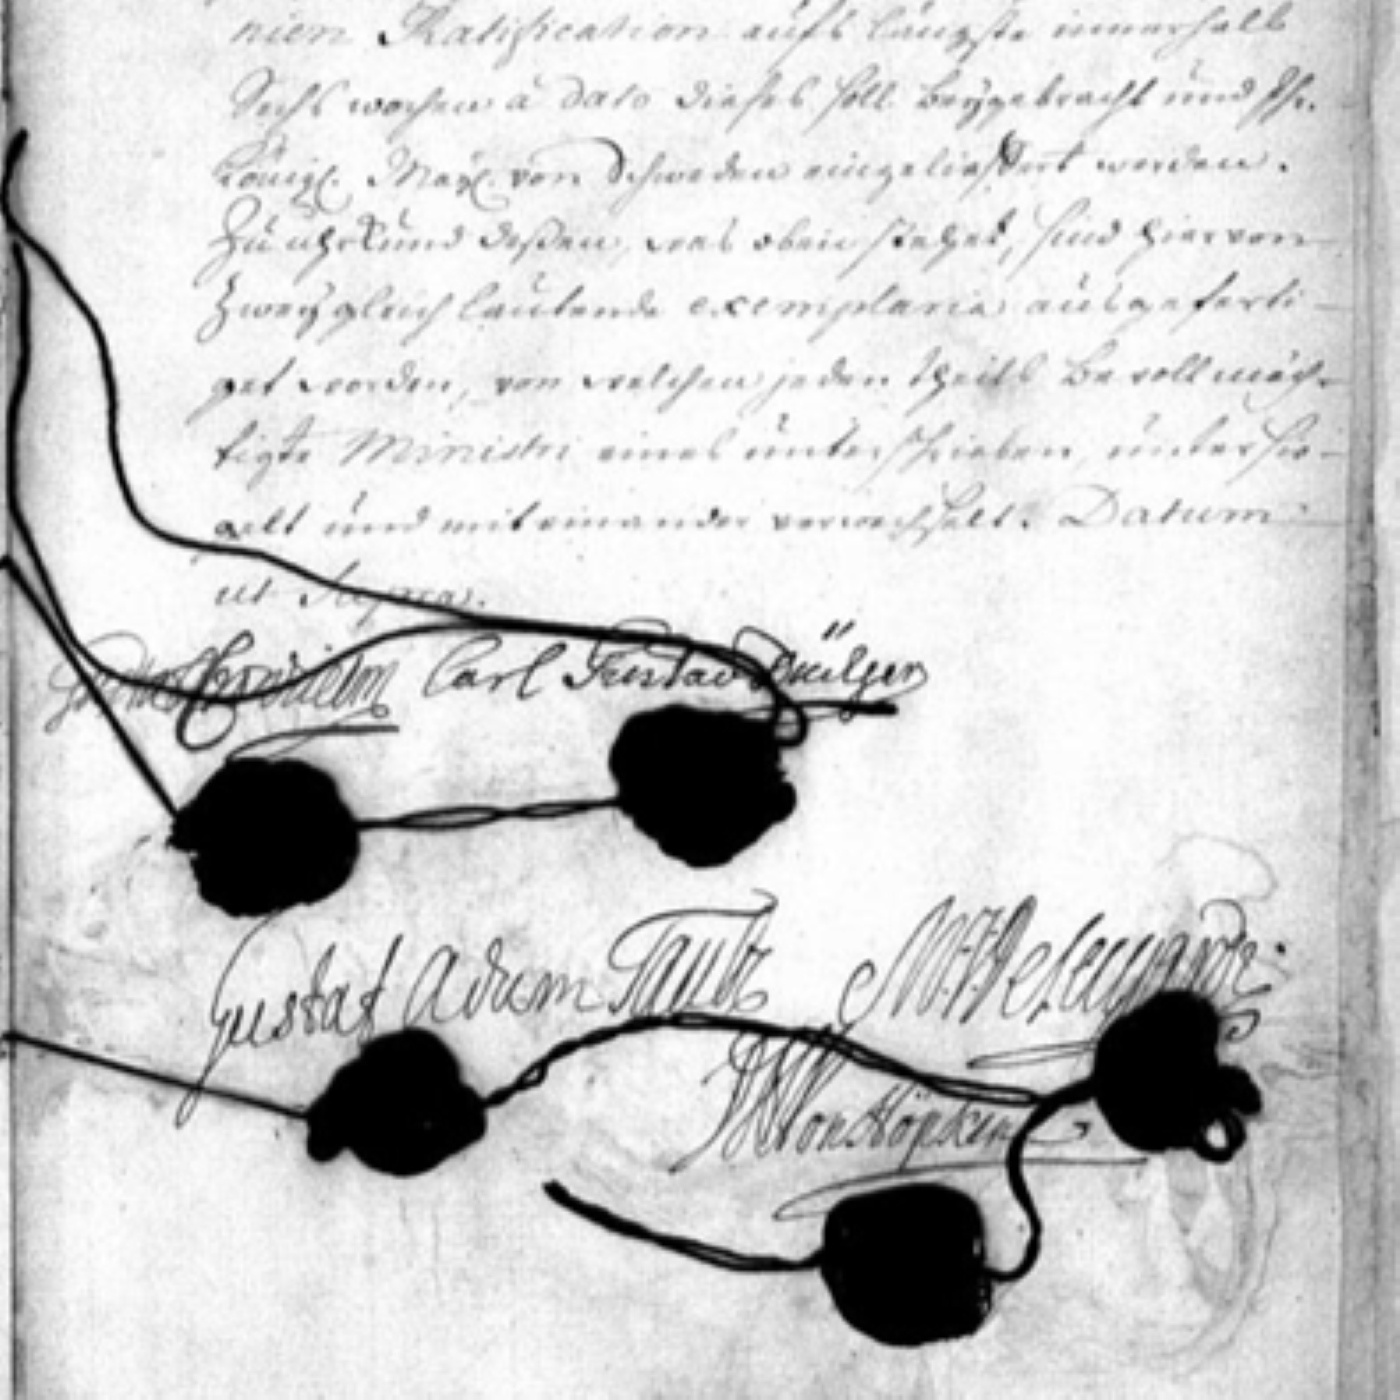 nien Ratification aufs längste innerhalb
Sechs wochen â dato dieses soll beygebracht und Ihr.
Königl. Mayt. von Schweden eingelieffert werden.
Zu uhrkund deßen, was oben stehet, sind hiervon
zwey gleich lautende exemplaria ausgeferti-
get worden, von welchen jeden theils Bevollmäch-
tigte Ministri eines unterschrieben, untersie-
gelt und miteinander verwechselt. Datum
ut Supra.
Carl Gustav Bülzer
Gustaf Adam Taube
von Höpken